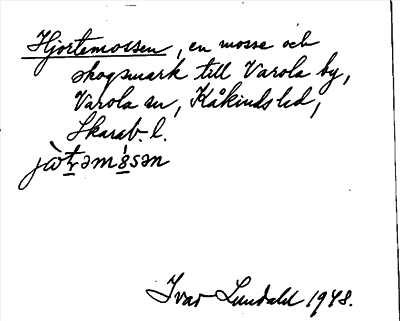 Hjortemossen, en mosse och
skogsmark till Varola by,
Varola sn, Kåkinds hd,
Skarab. l.
jὼt̲rəmò̲sən
Ivar Lundahl 1948.